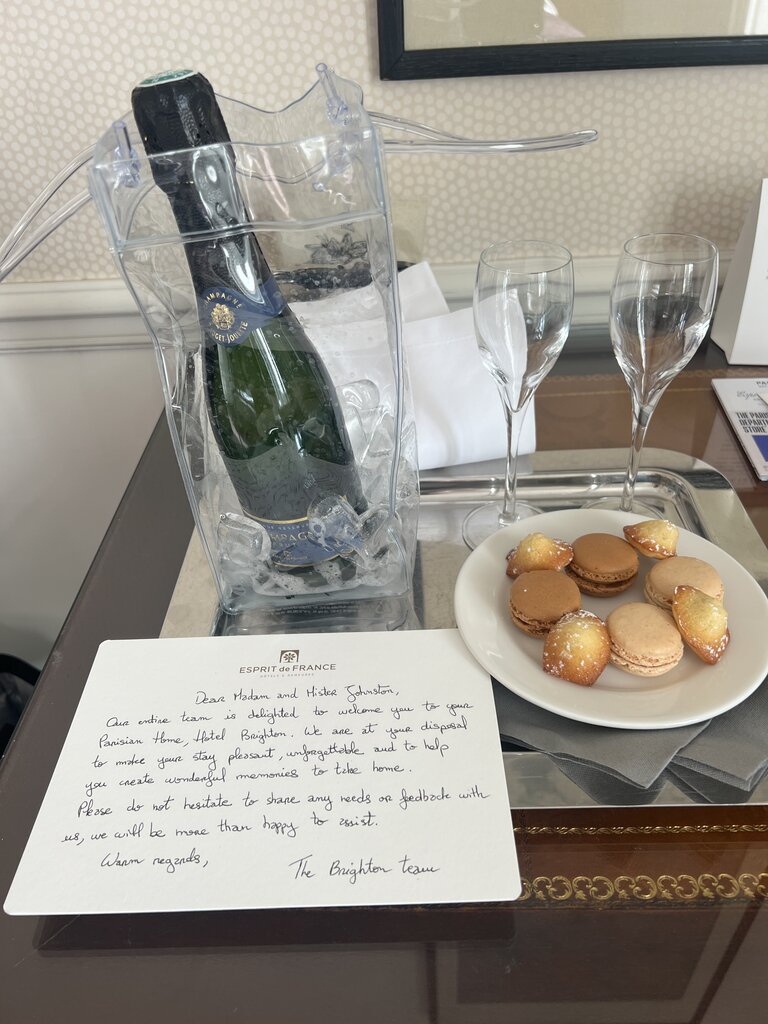 CHAMPAGNE
CHAMPAGNE
THE PARIS
DEPARTM
STORE
ESPRIT de FRANCE
HOTELS & DEMEURES
Dear Madam and Mister Johnston,
Our entire team is delighted to welcome you to your
Parisian Home, Hotel Brighton. We are at your disposal
to make your stay pleasant, unforgettable and to help
you create wonderful memories to take home.
Please do not hesitate to share any needs or feedback with
us, we will be more than happy to assist.
Warm regards,
The Brighton team